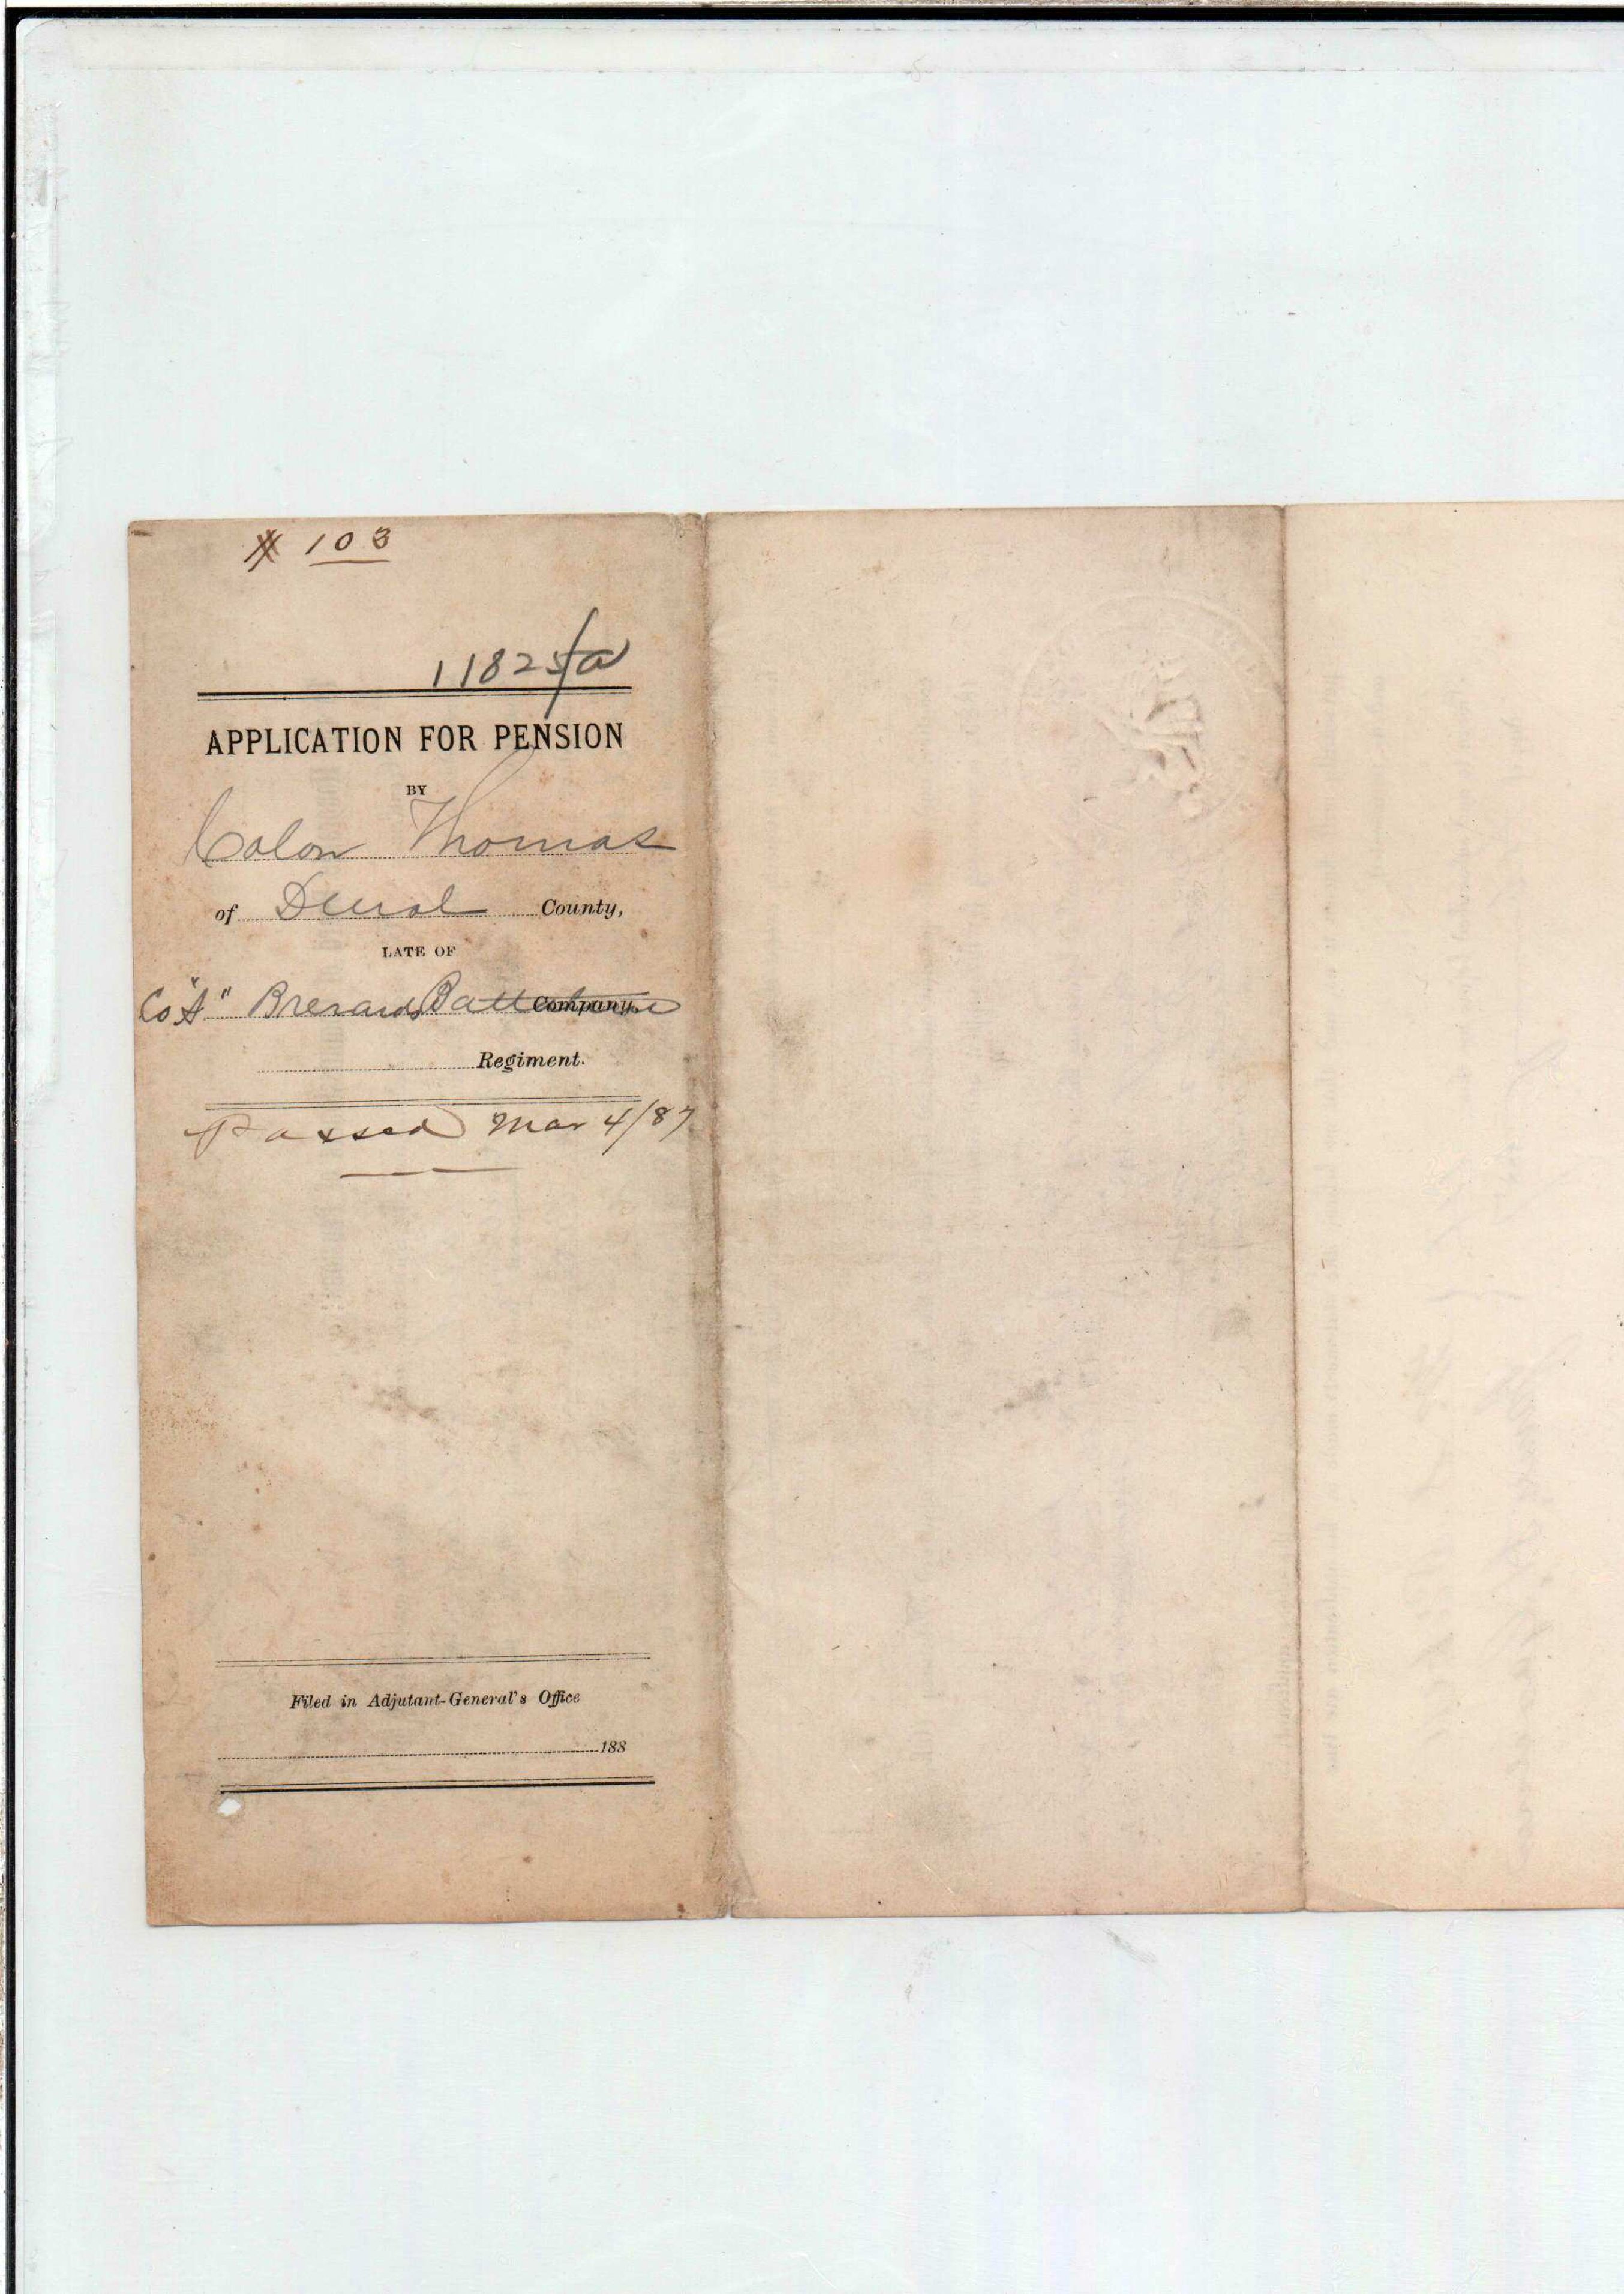 # 103
11825/a
APPLICATION FOR PENSION
BY
Colon Thomas
of Duval County,
LATE OF
Co "A" Brevards Battalion Company,
Regiment.
Passed Mar 4/87
Filed in Adjutant-General's Office
188